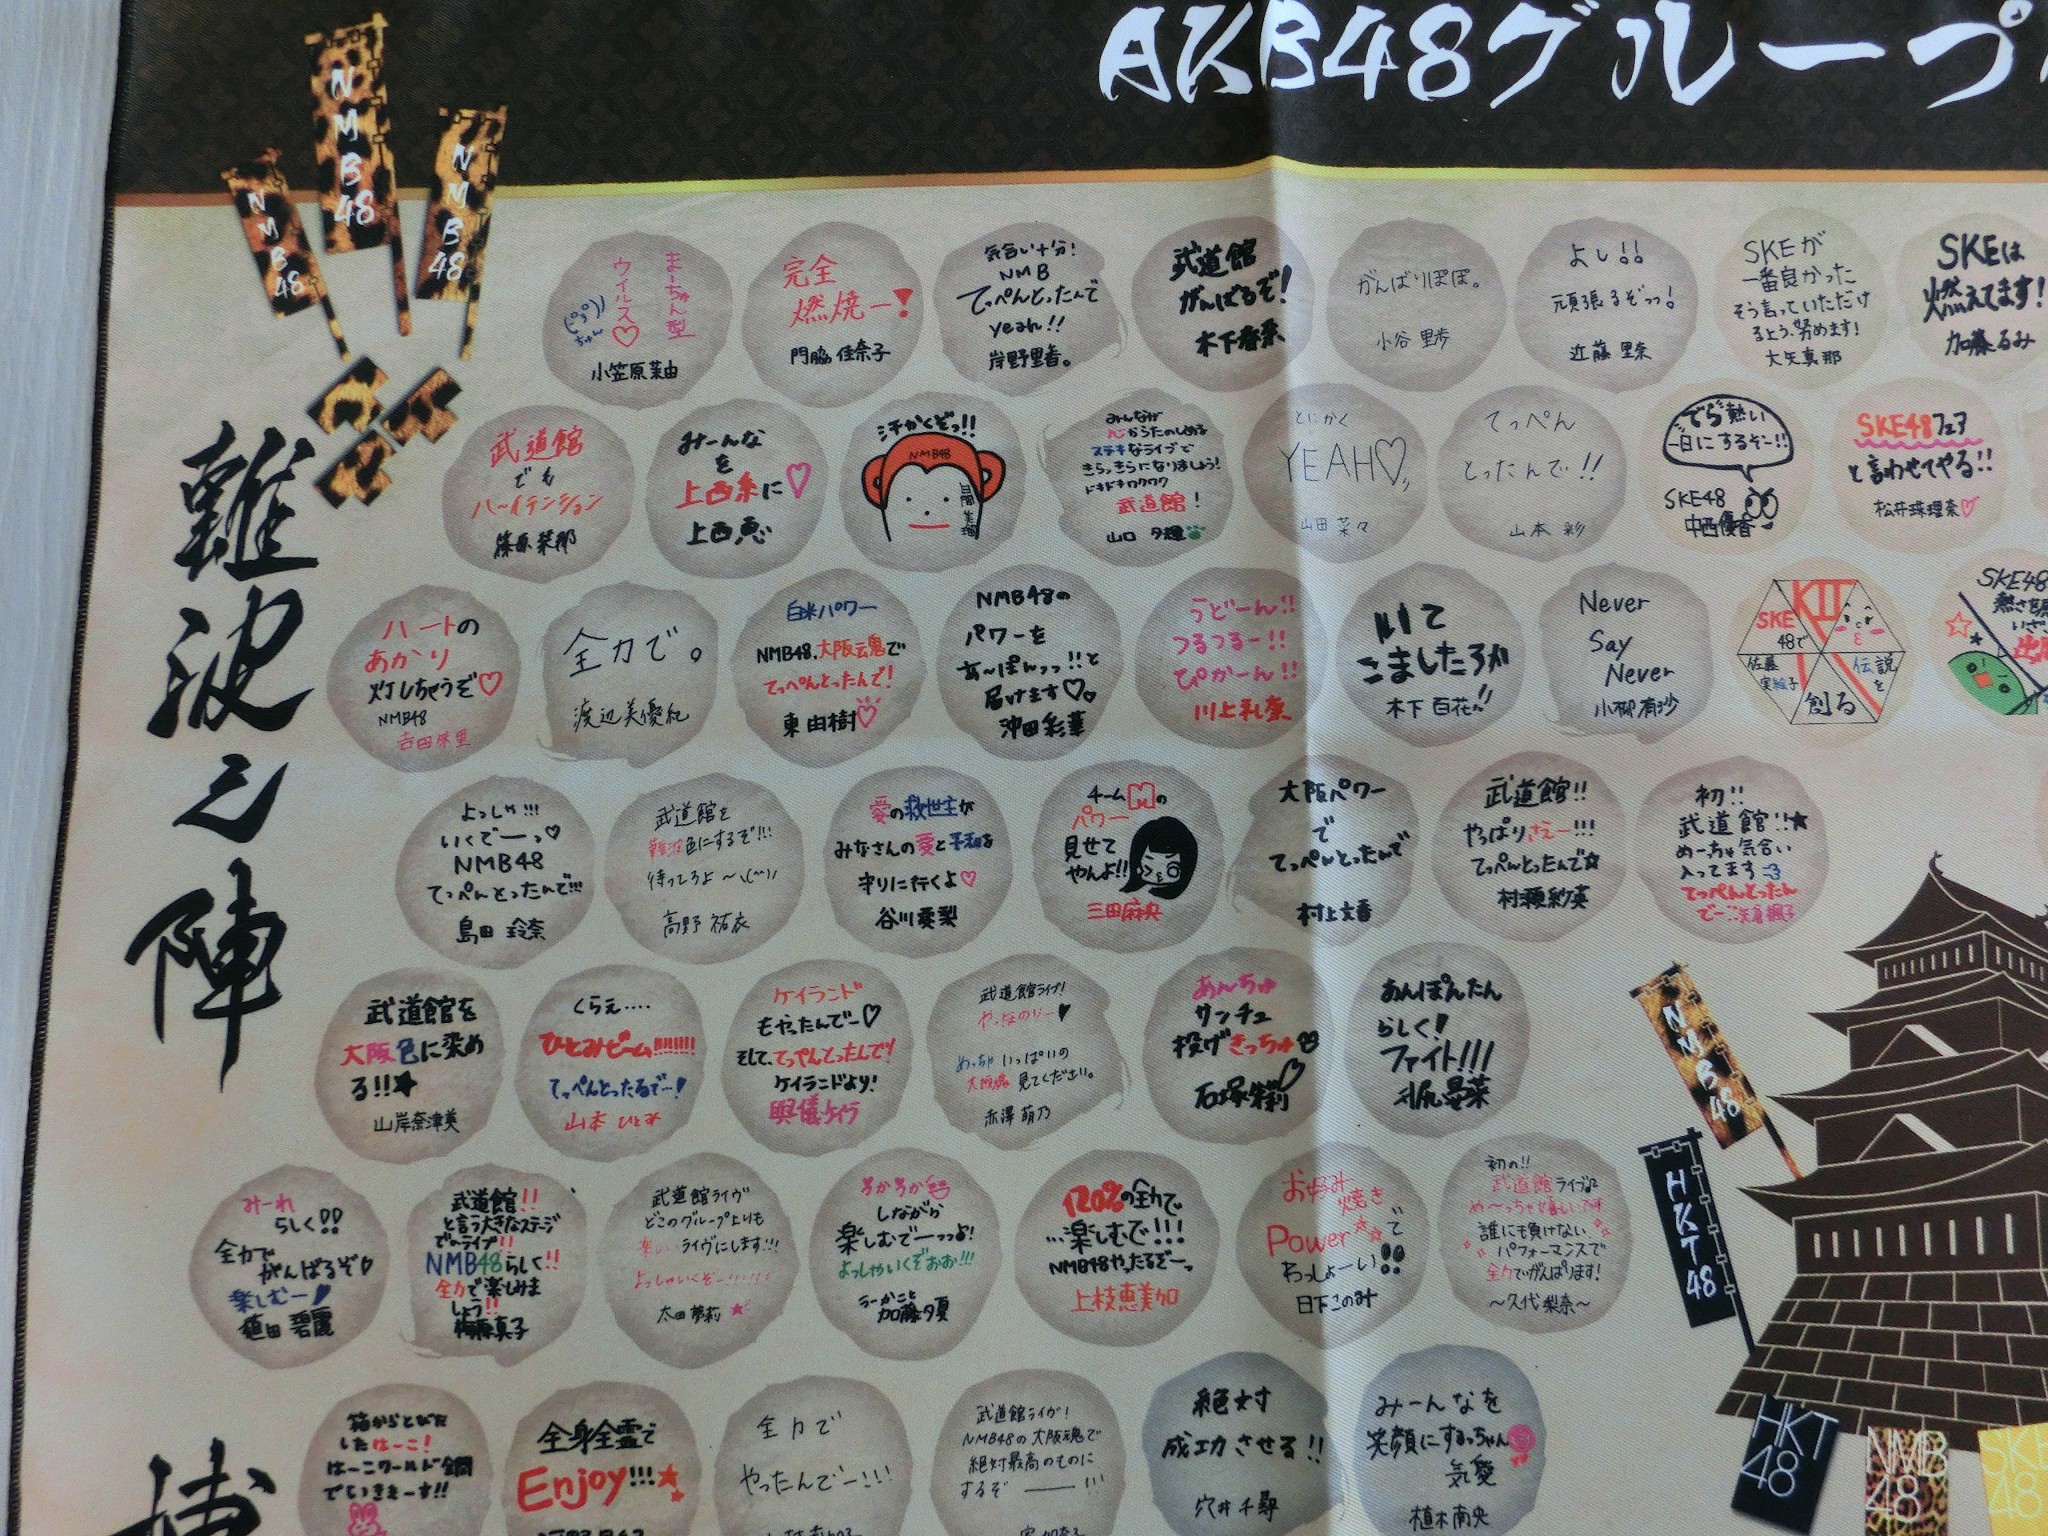 AKB48グループ
NMB48
NMB48
NMB48
難波之陣
まーちゅん型
ウイルス♡
ちゅん
小笠原茉由
完全
燃焼ー!
門脇佳奈子
気合い十分!
NMB
てっぺんとったんで
yeah!!
岸野里香。
武道館
がんばるぞ!
木下春奈
がんばりぽぽ。
小谷里歩
よし!!
頑張るぞっっ!
近藤里奈
SKEが
一番良かった
そう言っていただけ
るよう、努めます!
大矢真那
SKEは
燃えてます!
加藤るみ
武道館
でも
ハイテンション
篠原栞那
みーんな
を
上西系に♡
上西恵
汗かくぞっ!!
NMB48
みんなが
心からたのしめる
ステキなライブで
きらっきらになりましょう!
ドキドキワクワク
武道館!
山口夕輝
とにかく
YEAH♡
山田菜々
てっぺん
とったんで!!
山本彩
でら熱い
一日にするぞー!!
SKE48
中西優香
SKE48フェア
と言わせてやる!!
松井珠理奈♡
ハートの
あかり
灯しちゃうぞ♡
NMB48
吉田朱里
全力で。
渡辺美優紀
白米パワー
NMB48.大阪云鬼で
てっぺんとったんで!
東由樹♡
NMB48の
パワーを
あーぽんっっ!!と
届けます♡
沖田彩華
うどーん!!
つるつるー!!
ぴかーん!!
川上礼奈
いて
こましたろか
木下百花!!
Never
Say
Never
小柳有沙
KII
SKE
48で
佐藤
実絵子
伝説
を
創る
SKE48
よっしゃ!!!
いくでーっ♡
NMB48
てっぺんとったんで!!!
島田玲奈
武道館を
難波色にするぞ!!!
待ってろよ~
高野祐衣
愛の救世主が
みなさんの愛と平和を
守りに行くよ♡
谷川愛梨
チームMの
パワー
見せて
やんよ!!
三田麻央
大阪パワー
で
てっぺんとったんで
村上文香
武道館!!
やっぱりさえー!!!
てっぺんとったんで☆
村瀬紗英
初!!
武道館!!★
めーっちゃ気合い
入ってます
てっぺんとったん
でー♡矢倉楓子
武道館を
大阪色に染め
る!!★
山岸奈津美
くらえ....
ひとみビーム!!!!!!!
てっぺんとったるでー!
山本ひとみ
ケイランド
もやったんでー♡
そして、てっぺんとったんで!
ケイランドより!
與儀ケイラ
武道館ライブ!
やっほのりー♥
めっちゃいっぱいの
大阪魂見てください。
赤澤萌乃
あんちゅ
サンチュ
投げきっちゅ
石塚朱莉
あんぽんたん
らしく!
ファイト!!!
川尻晏菜
みーれ
らしく!!
全力で
がんばるぞ♡
楽しむー!
植田碧麗
武道館!!
と言う大きなステージ
でのライブ!!
NMB48らしく!!
全力で楽しみま
しょう!!
梅原真子
武道館ライヴ
どこのグループよりも
楽しいライヴにします!!!
よっしゃいくぞー!!!!!!
太田夢莉★
しながら
楽しむでーっっよ!
よっしゃいくぞおお!!!
うーかこと
加藤夕夏
120%の全力で
...楽しむで!!!
NMB48やったるぞーっ
上枝恵美加
お好み
焼き
Powerで
わっしょーい!!
日下このみ
初の!!
武道館ライブ♪
めーっちゃ嬉しいです
誰にも負けない
パフォーマンスで
全力でがんばります!
~久代梨奈~
NMB48
HKT48
箱からとびだ
したはーこ!
はーこワールド全開
でいきまーす!!
全身全霊で
Enjoy!!!★
全力で
やったんでー!!!
武道館ライブ!
NMB48の大阪魂で
絶対最高のものに
するぞー!!!
絶対
成功させる!!
穴井千尋
みーんなを
笑顔にするっちゃん
気愛
植木南央
HKT
48
NMB
48
SKE
48
博